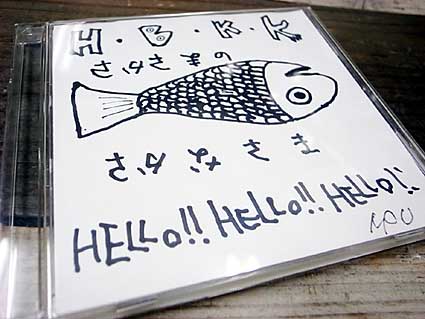 H・B・K・K
さかさまの
さかなさま
HELLO!! HELLO!! HELLO!!